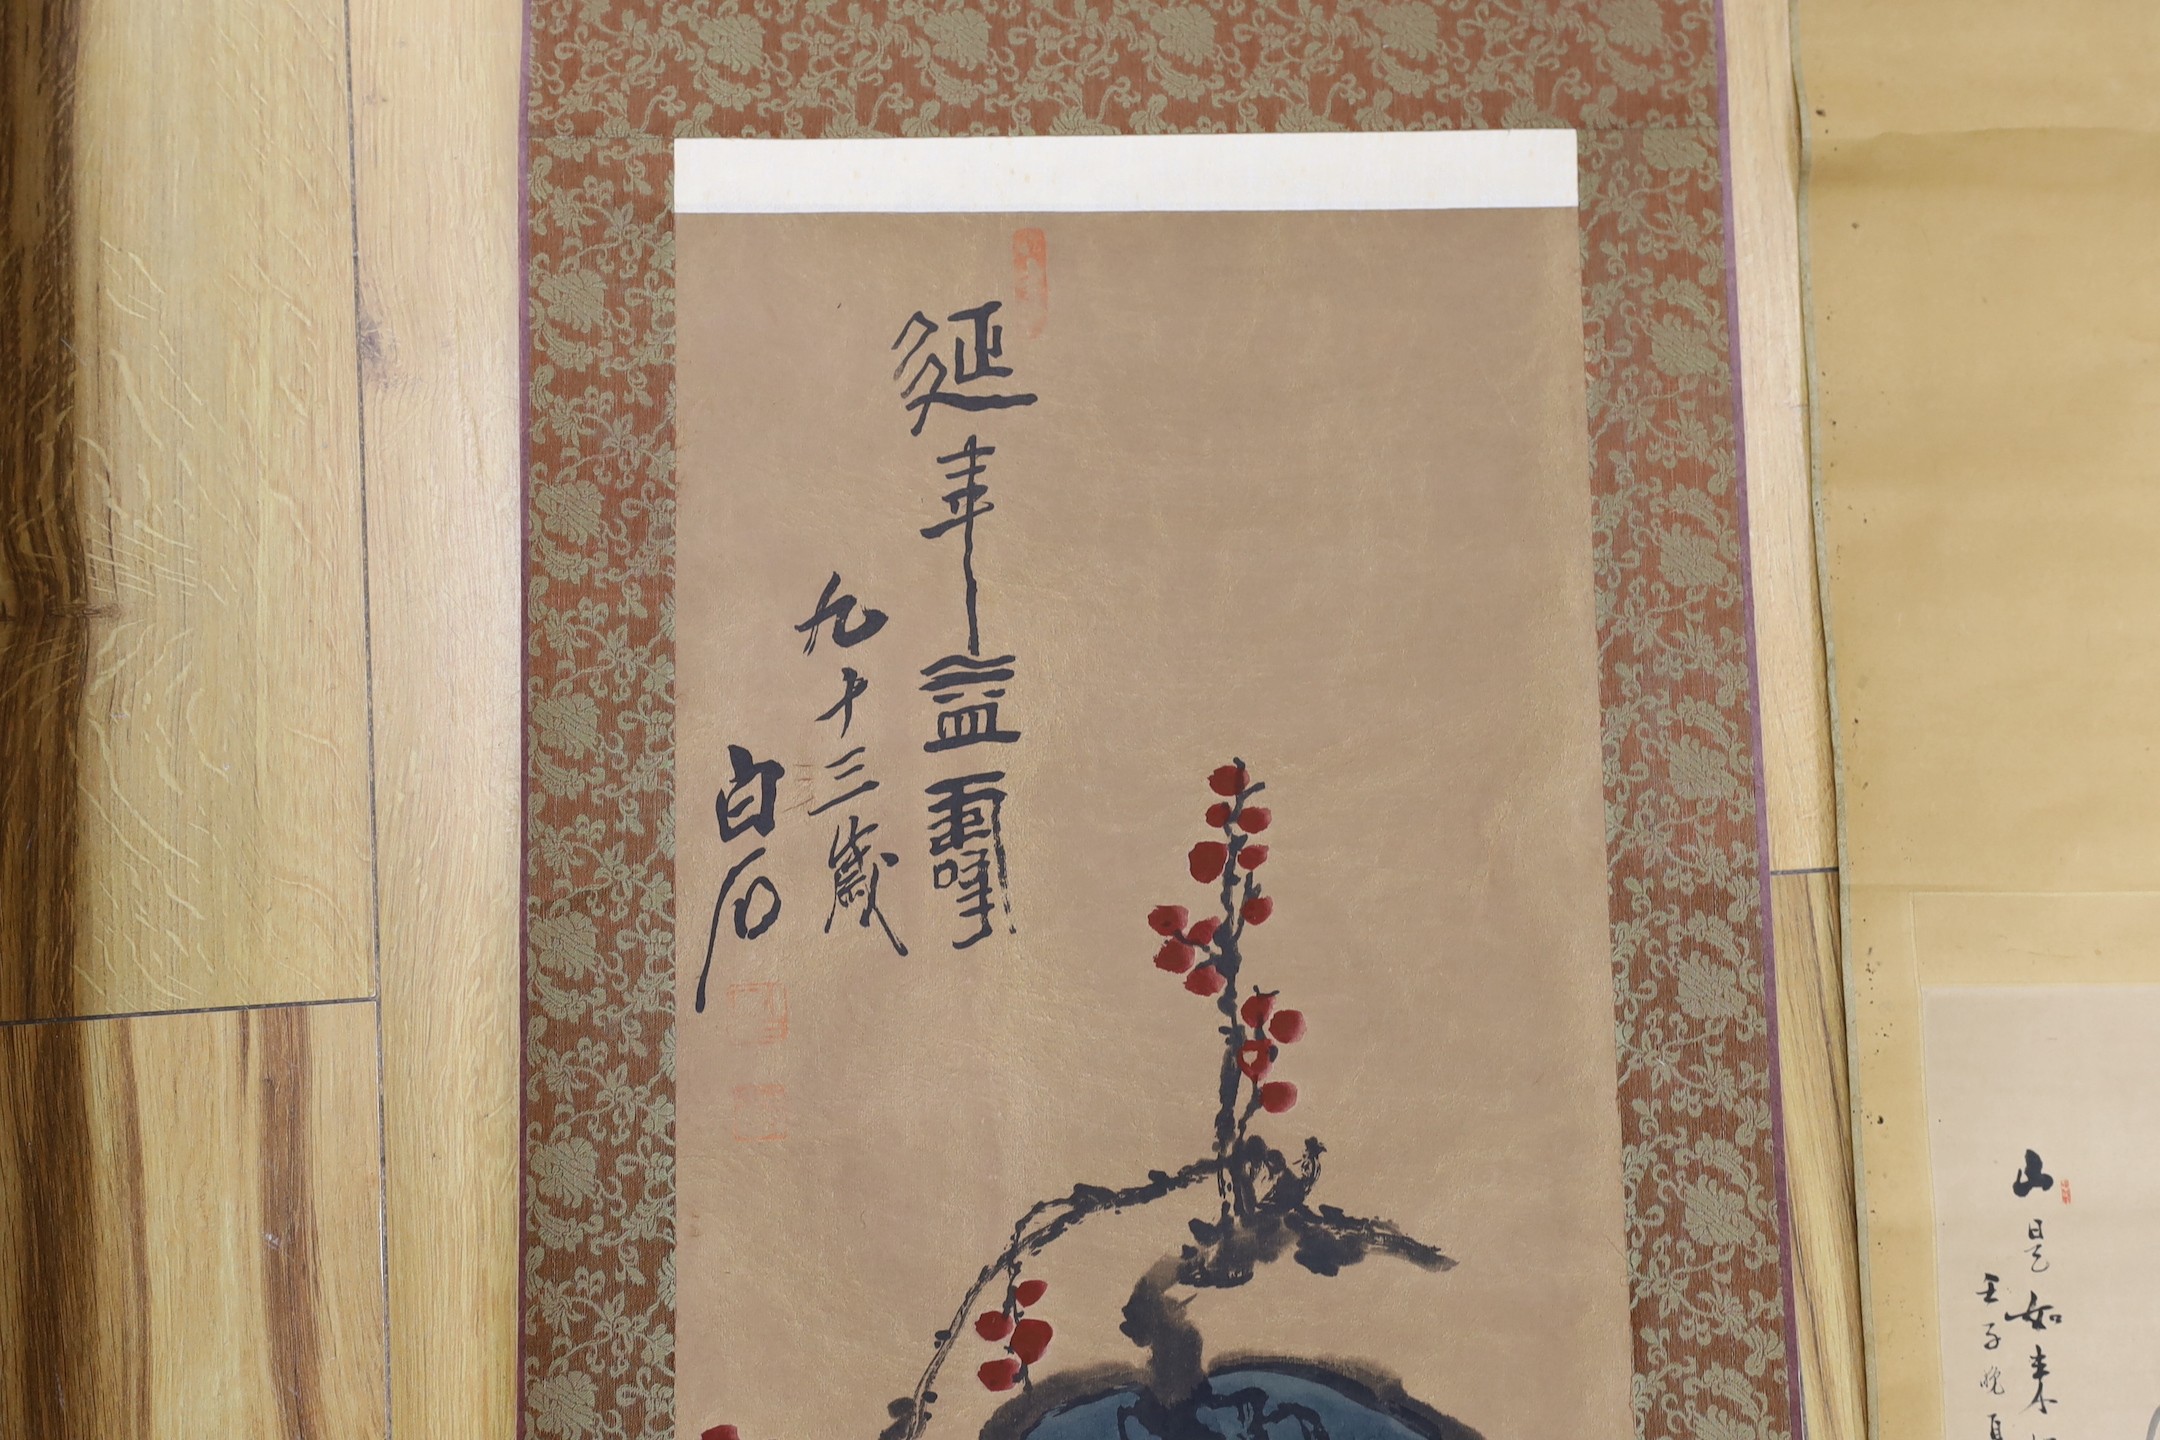 延年益壽
九十三歲
白石
山是如来
壬子晚夏